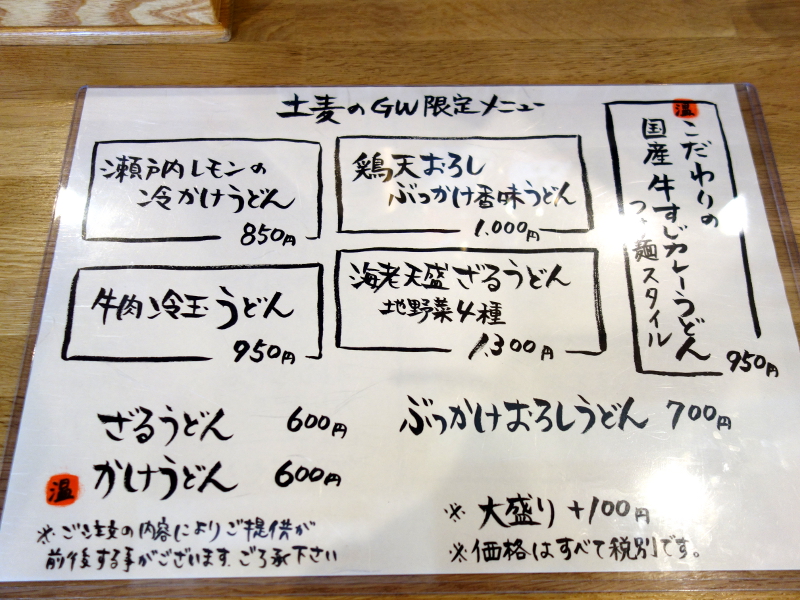 土麦のGW限定メニュー
瀬戸内レモンの
冷かけうどん
850円
鶏天おろし
ぶっかけ香味うどん
1.000円
温
こだわりの
国産牛すじカレーうどん
つけ麺スタイル
950円
牛肉冷玉うどん
950円
海老天盛ざるうどん
地野菜4種
1.300円
ざるうどん 600円
ぶっかけおろしうどん 700円
温 かけうどん 600円
※ご注文の内容によりご提供が
前後する事がございます.ご了承下さい
※ 大盛り +100円
※価格はすべて税別です。